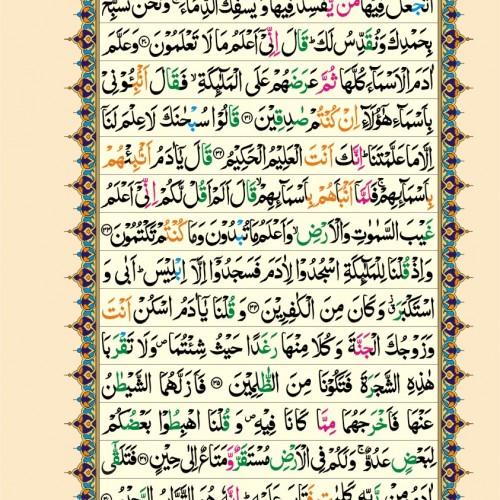 اَتَجْعَلُ فِيْهَا مَنْ يُّفْسِدُ فِيْهَا وَيَسْفِكُ الدِّمَآءَ ۚ وَنَحْنُ نُسَبِّحُ
بِحَمْدِكَ وَنُقَدِّسُ لَكَ ؕ قَالَ اِنِّىْٓ اَعْلَمُ مَا لَا تَعْلَمُوْنَ ﴿۳۰﴾ وَعَلَّمَ
اٰدَمَ الْاَسْمَآءَ كُلَّهَا ثُمَّ عَرَضَهُمْ عَلَى الْمَلٰٓئِكَةِ ۙ فَقَالَ اَنْۢبِـُٔوْنِىْ
بِاَسْمَآءِ هٰٓؤُلَآءِ اِنْ كُنْتُمْ صٰدِقِيْنَ ﴿۳۱﴾ قَالُوْا سُبْحٰنَكَ لَا عِلْمَ لَنَآ
اِلَّا مَا عَلَّمْتَنَا ؕ اِنَّكَ اَنْتَ الْعَلِيْمُ الْحَكِيْمُ ﴿۳۲﴾ قَالَ يٰٓاٰدَمُ اَنْۢبِئْهُمْ
بِاَسْمَآئِهِمْ ۚ فَلَمَّآ اَنْۢبَاَهُمْ بِاَسْمَآئِهِمْ ۙ قَالَ اَلَمْ اَقُلْ لَّكُمْ اِنِّىْٓ اَعْلَمُ
غَيْبَ السَّمٰوٰتِ وَالْاَرْضِ ۙ وَاَعْلَمُ مَا تُبْدُوْنَ وَمَا كُنْتُمْ تَكْتُمُوْنَ ﴿۳۳﴾
وَاِذْ قُلْنَا لِلْمَلٰٓئِكَةِ اسْجُدُوْا لِاٰدَمَ فَسَجَدُوْٓا اِلَّآ اِبْلِيْسَ ؕ اَبٰى وَ
اسْتَكْبَرَ ۫ وَكَانَ مِنَ الْكٰفِرِيْنَ ﴿۳۴﴾ وَ قُلْنَا يٰٓاٰدَمُ اسْكُنْ اَنْتَ
وَزَوْجُكَ الْجَنَّةَ وَكُلَا مِنْهَا رَغَدًا حَيْثُ شِئْتُمَا ۪ وَلَا تَقْرَبَا
هٰذِهِ الشَّجَرَةَ فَتَكُوْنَا مِنَ الظّٰلِمِيْنَ ﴿۳۵﴾ فَاَزَلَّهُمَا الشَّيْطٰنُ
عَنْهَا فَاَخْرَجَهُمَا مِمَّا كَانَا فِيْهِ ۪ وَ قُلْنَا اهْبِطُوْا بَعْضُكُمْ
لِبَعْضٍ عَدُوٌّ ۚ وَلَكُمْ فِى الْاَرْضِ مُسْتَقَرٌّ وَّمَتَاعٌ اِلٰى حِيْنٍ ﴿۳۶﴾ فَتَلَقّٰٓى
اٰدَمُ مِنْ رَّبِّهٖ كَلِمٰتٍ فَتَابَ عَلَيْهِ ؕ اِنَّهٗ هُوَ التَّوَّابُ الرَّحِيْمُ ﴿۳۷﴾